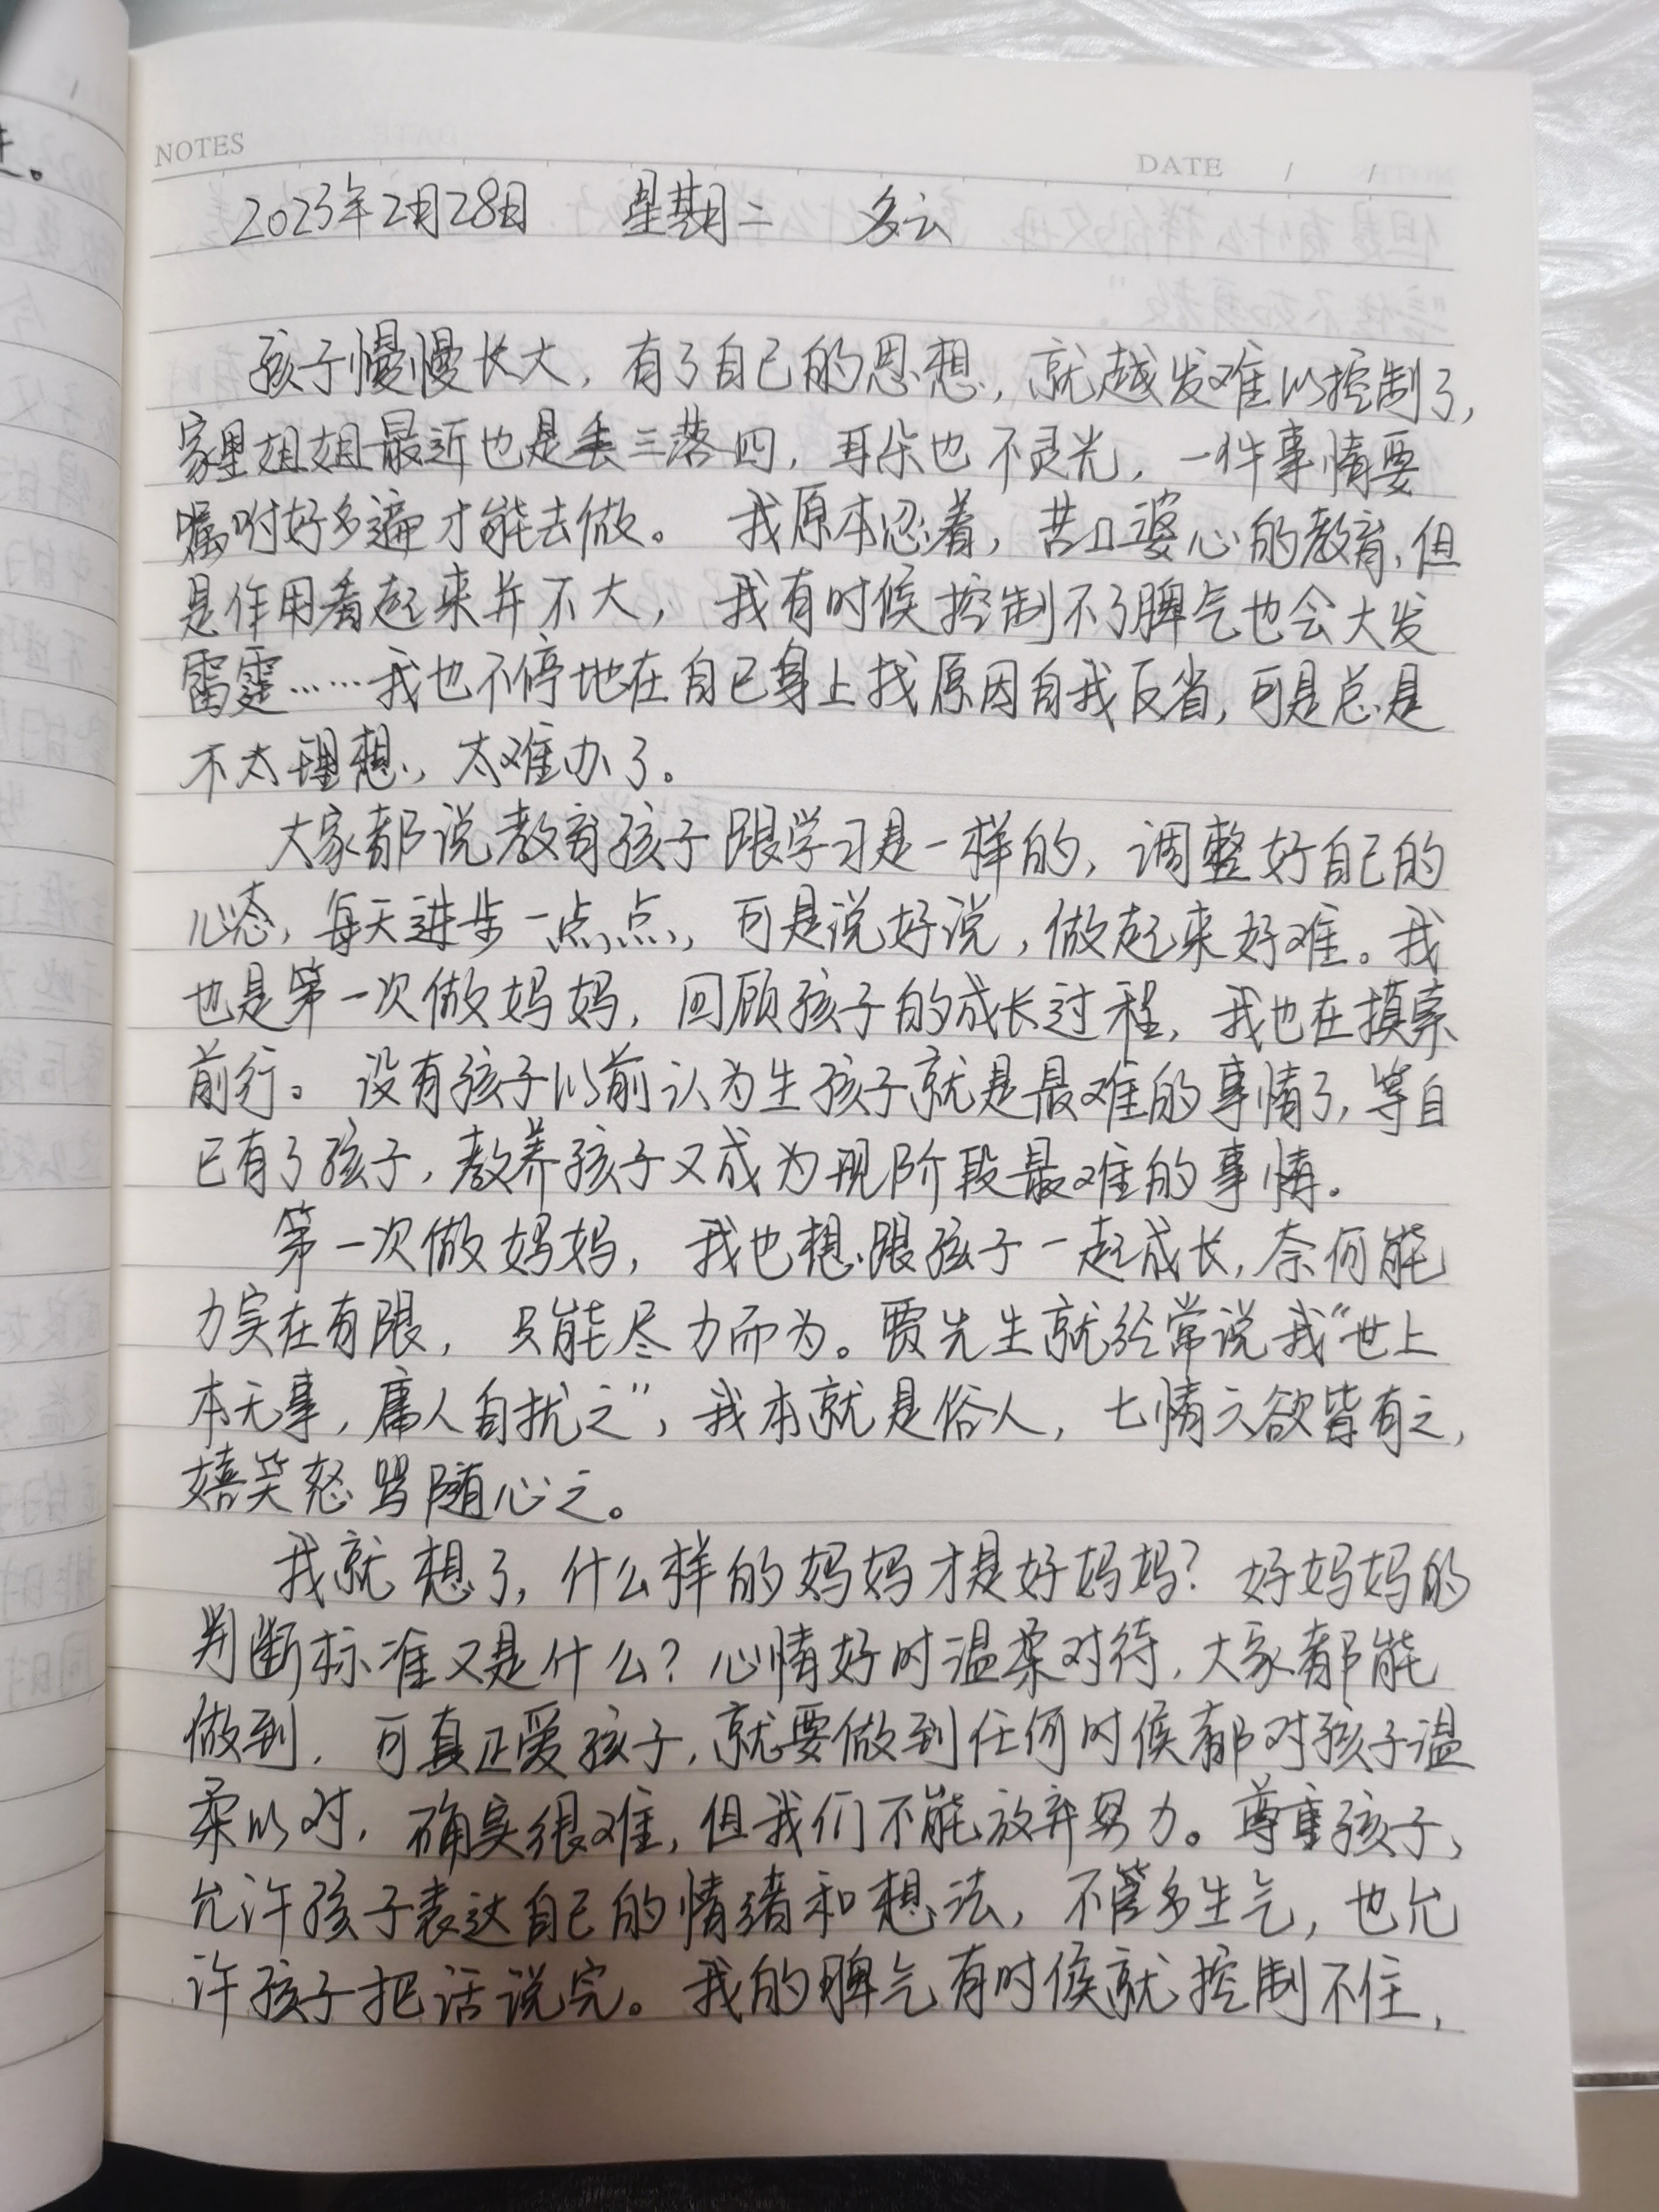 NOTES
DATE / /
2023年2月28日 星期二 多云
孩子慢慢长大，有了自己的思想，就越发难以控制了，
家里姐姐最近也是丢三落四，耳朵也不灵光，一件事情要
嘱咐好多遍才能去做。我原本忍着，苦口婆心的教育，但
是作用看起来并不大，我有时候控制不了脾气也会大发
雷霆……我也不停地在自己身上找原因自我反省，可是总是
不太理想，太难办了。
大家都说教育孩子跟学习是一样的，调整好自己的
心态，每天进步一点点，可是说好说，做起来好难。我
也是第一次做妈妈，回顾孩子的成长过程，我也在摸索
前行。没有孩子以前认为生孩子就是最难的事情了，等自
己有了孩子，教养孩子又成为现阶段最难的事情。
第一次做妈妈，我也想跟孩子一起成长，奈何能
力实在有限，只能尽力而为。贾先生就经常说我“世上
本无事，庸人自扰之”，我本就是俗人，七情六欲皆有之，
嬉笑怒骂随心之。
我就想了，什么样的妈妈才是好妈妈？好妈妈的
判断标准又是什么？心情好时温柔对待，大家都能
做到，可真正爱孩子，就要做到任何时候都对孩子温
柔以对，确实很难，但我们不能放弃努力。尊重孩子，
允许孩子表达自己的情绪和想法，不管多生气，也允
许孩子把话说完。我的脾气有时候就控制不住，